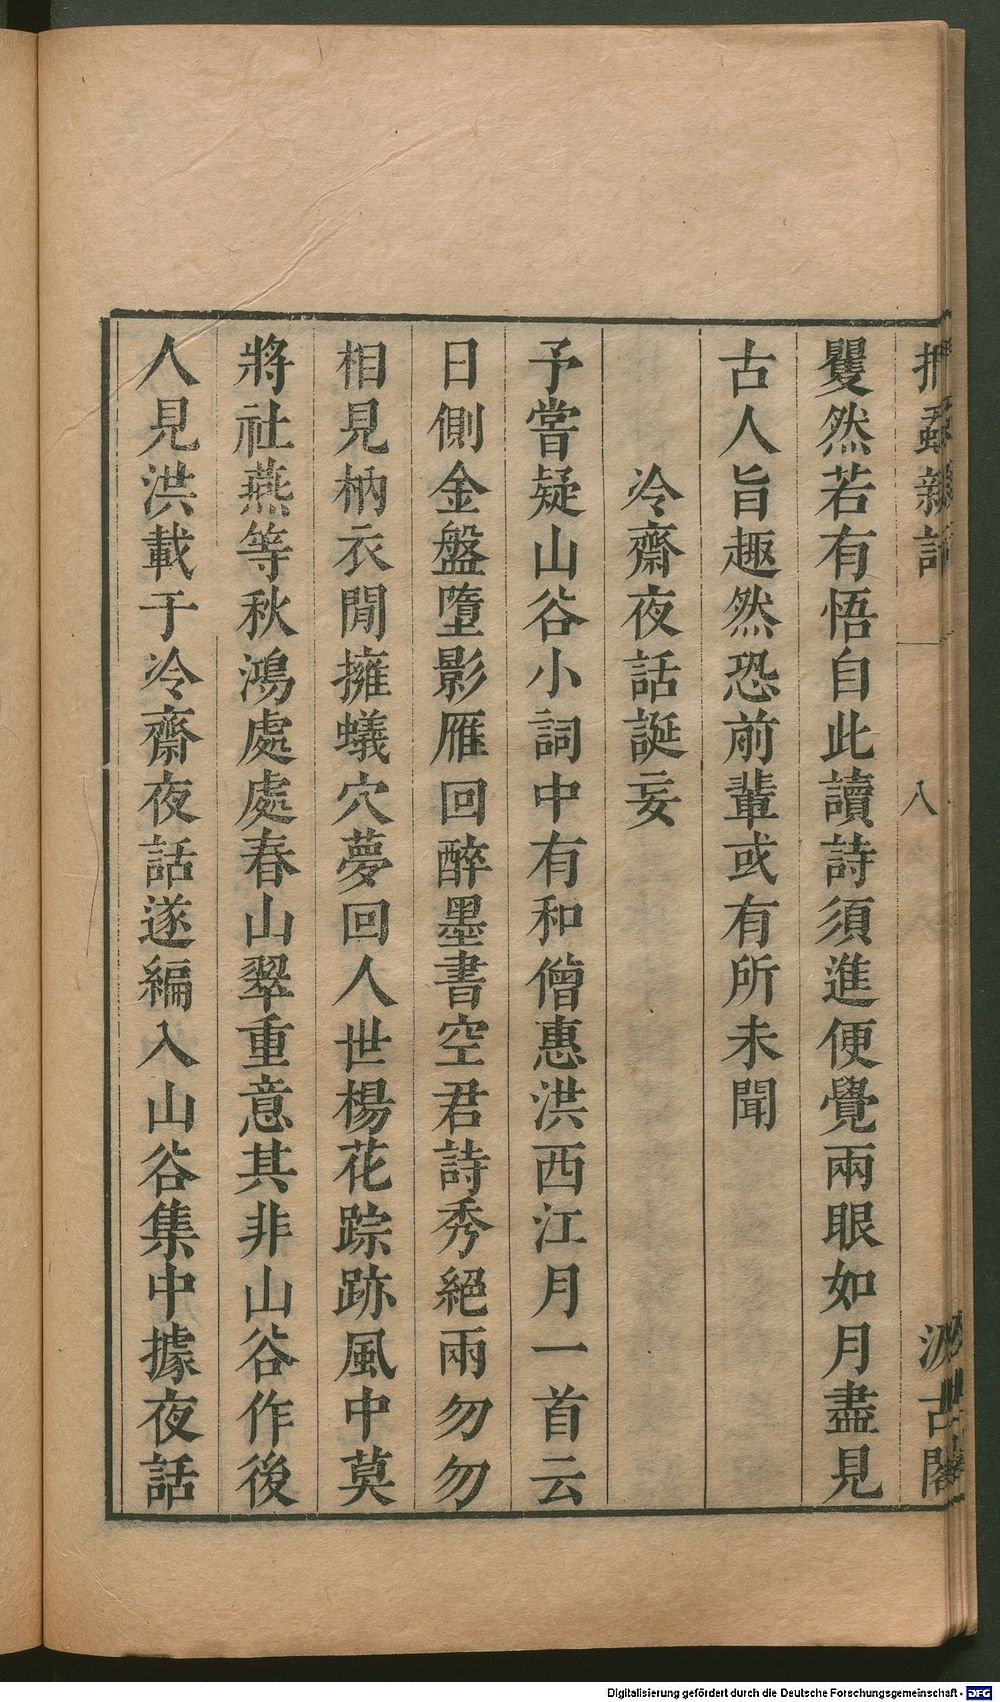 捫蝨新話
八
汲古閣
矍然若有悟自此讀詩須進便覺兩眼如月盡見
古人旨趣然恐前輩或有所未聞
冷齋夜話誕妄
予嘗疑山谷小詞中有和僧惠洪西江月一首云
日側金盤墮影雁回醉墨書空君詩秀絕兩勿勿
相見枘衣閒擁蟻穴夢回人世楊花踪跡風中莫
將社燕等秋鴻處處春山翠重意其非山谷作後
人見洪載于冷齋夜話遂編入山谷集中據夜話
Digitalisierung gefördert durch die Deutsche Forschungsgemeinschaft - DFG